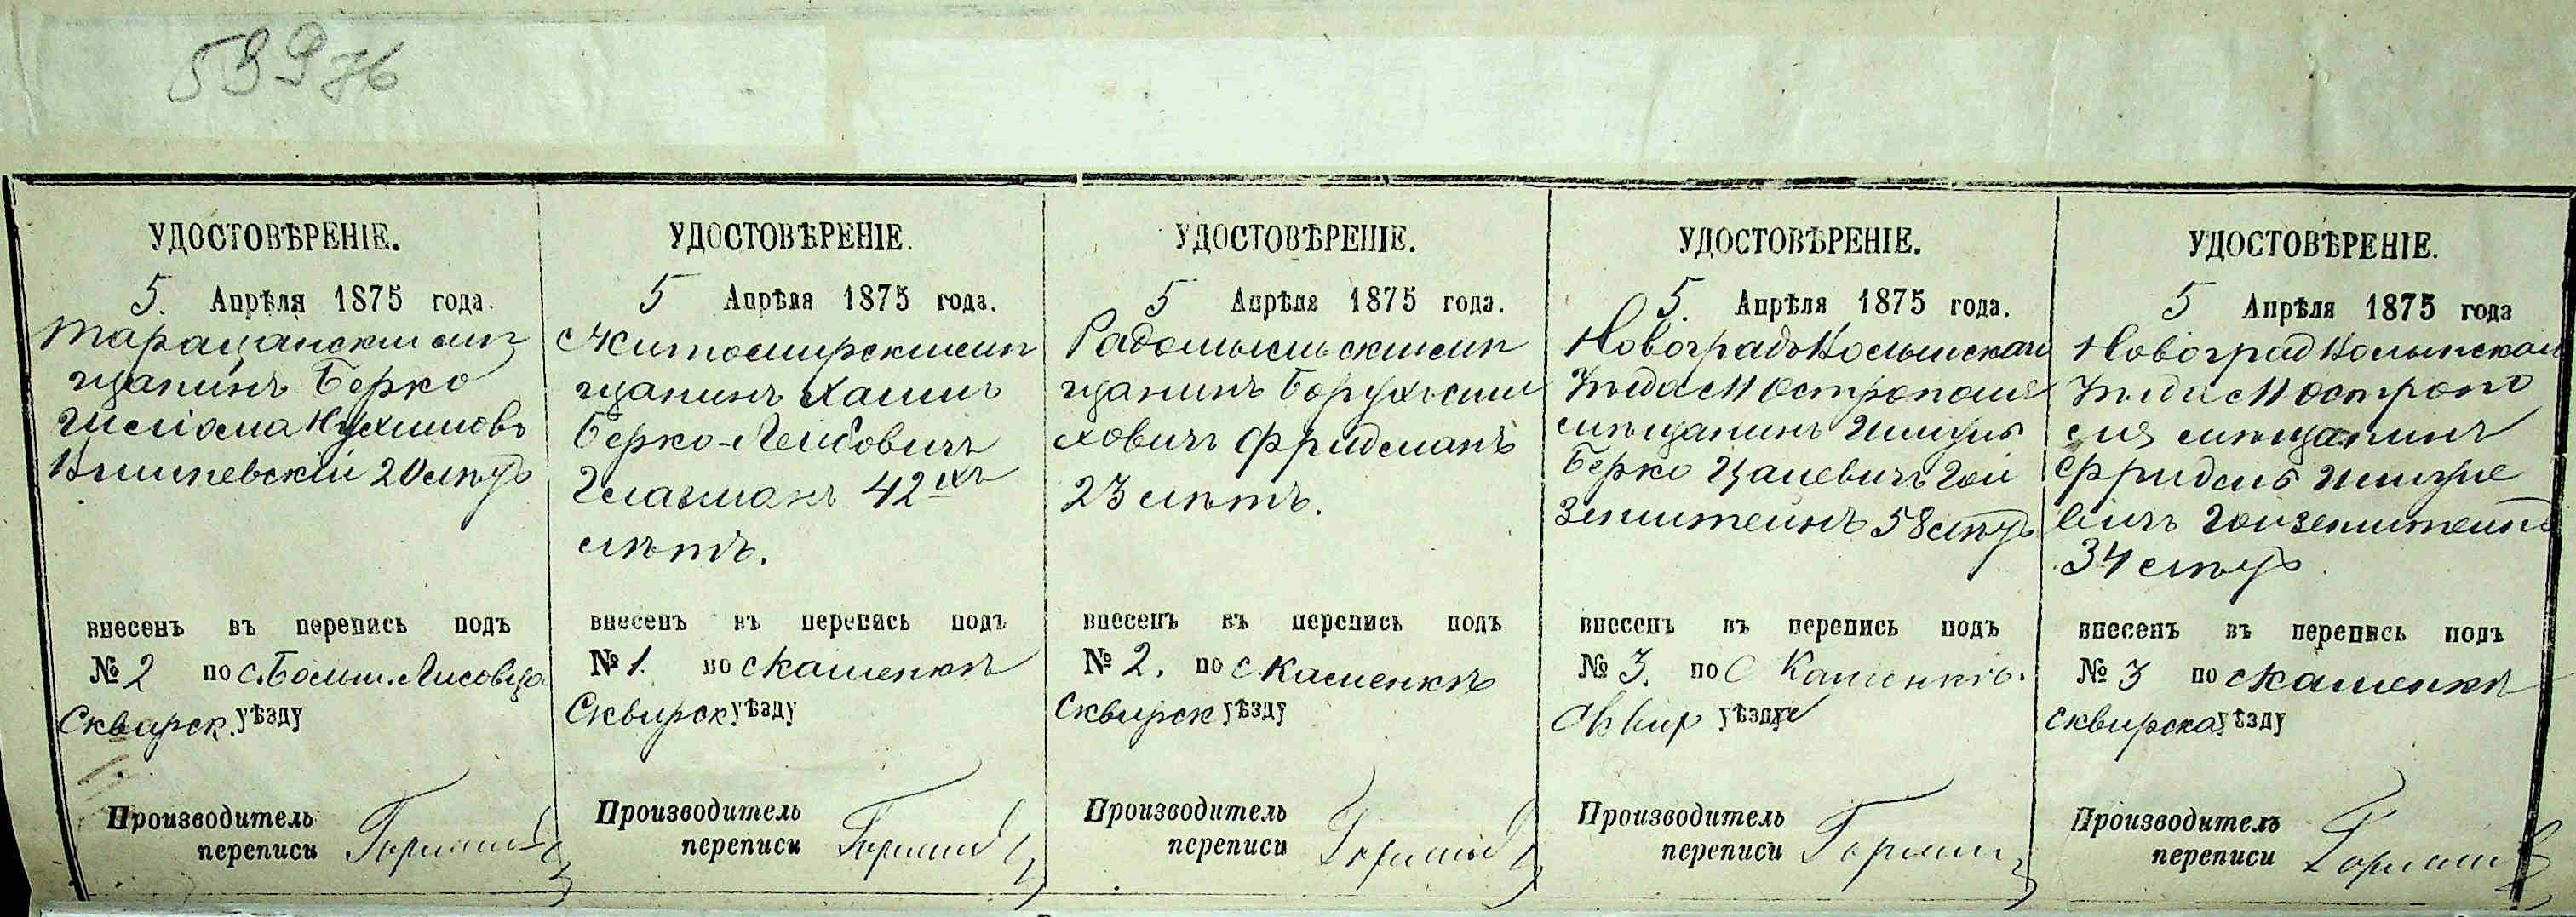 УДОСТОВѢРЕНІЕ.
5. Апрѣля 1875 года.
Таращанскій мѣ
щанинъ Берко
20 лѣтъ
внесенъ въ перепись подъ
№ 2 по с. Больш. Лисовца
Сквирск. уѣзду
Производитель
переписи
УДОСТОВѢРЕНІЕ.
5 Апрѣля 1875 года.
Житомирскій мѣ
щанинъ Хаимъ
Берко-Лейбовичъ
Глазманъ 42-хъ
лѣтъ.
внесенъ въ перепись подъ
№ 1. по с Каменкѣ
Сквирск уѣзду
Производитель
переписи
УДОСТОВѢРЕНІЕ.
5 Апрѣля 1875 года.
Радомысльскій мѣ
щанинъ Борухъ Сим
ховичъ Фридманъ
23 лѣтъ.
внесенъ въ перепись подъ
№ 2. по с Каменкѣ
Сквирск уѣзду
Производитель
переписи
УДОСТОВѢРЕНІЕ.
5. Апрѣля 1875 года.
Новоградволынскаго
уѣзда М Острополя
мѣщанинъ
Берко Гой
зенштейнъ 58 лѣтъ
внесенъ въ перепись подъ
№ 3. по С Каменкѣ.
Сквир уѣзду
Производитель
переписи
УДОСТОВѢРЕНІЕ.
5 Апрѣля 1875 года
Новоград Волынскаго
уѣзда М Остропо
ля мѣщанинъ
Фридель
вичъ Гойзенштейнъ
34 лѣтъ
внесенъ въ перепись подъ
№ 3 по с Каменкѣ
Сквирска уѣзду
Производитель
переписи